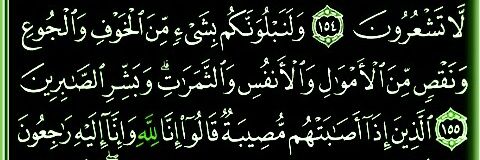 لَّا تَشْعُرُونَ ١٥٤ وَلَنَبْلُوَنَّكُم بِشَىْءٍ مِّنَ ٱلْخَوْفِ وَٱلْجُوعِ
وَنَقْصٍ مِّنَ ٱلْأَمْوَٰلِ وَٱلْأَنفُسِ وَٱلثَّمَرَٰتِ ۗ وَبَشِّرِ ٱلصَّٰبِرِينَ
١٥٥ ٱلَّذِينَ إِذَآ أَصَٰبَتْهُم مُّصِيبَةٌ قَالُوٓا۟ إِنَّا لِلَّهِ وَإِنَّآ إِلَيْهِ رَٰجِعُونَ